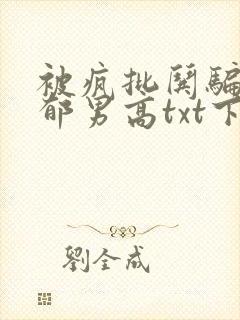 被疯批鬨騙
郁男高txt下
劉全成